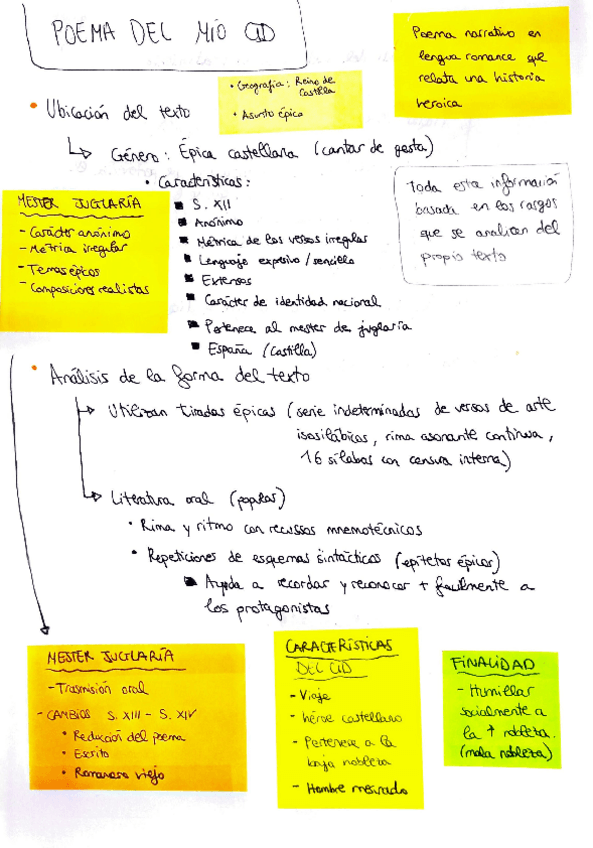 POEMA DEL MÍO CID
Poema narrativo en
lengua romance que
relata una historia
heroica
• Geografía: Reino de
Castilla
• Asunto épica
• Ubicación del texto
↳ Género: Épica castellana (cantar de gesta)
• Características:
■ S. XII
■ Anónimo
■ Métrica de los versos irregular
■ Lenguaje expresivo/sencillo
■ Extensos
■ Carácter de identidad nacional
■ Pertenece al mester de juglaría
■ España (Castilla)
MESTER JUGLARÍA
- Carácter anónimo
- Métrica irregular
- Temas épicos
- Composiciones realistas
Toda esta información
basada en los rasgos
que se analizan del
propio texto
• Análisis de la forma del texto
↳ Utilizan tiradas épicas (serie indeterminadas de versos de arte
isosilábicos, rima asonante continua,
16 sílabas con censura interna)
↳ Literatura oral (popular)
• Rima y ritmo con recursos mnemotécnicos
• Repeticiones de esquemas sintácticos (epítetos épicos)
■ Ayuda a recordar y reconocer + facilmente a
los protagonistas
MESTER JUGLARÍA
- Trasmisión oral
- CAMBIOS S. XIII - S. XIV
• Redacción del poema
• Escrito
• Romancero viejo
CARACTERÍSTICAS
DEL CID
- Viaje
- héroe castellano
- Pertenece a la
baja nobleza
- Hombre mesurado
FINALIDAD
- Humillar
socialmente a
la ↑ nobleza.
(mala nobleza)